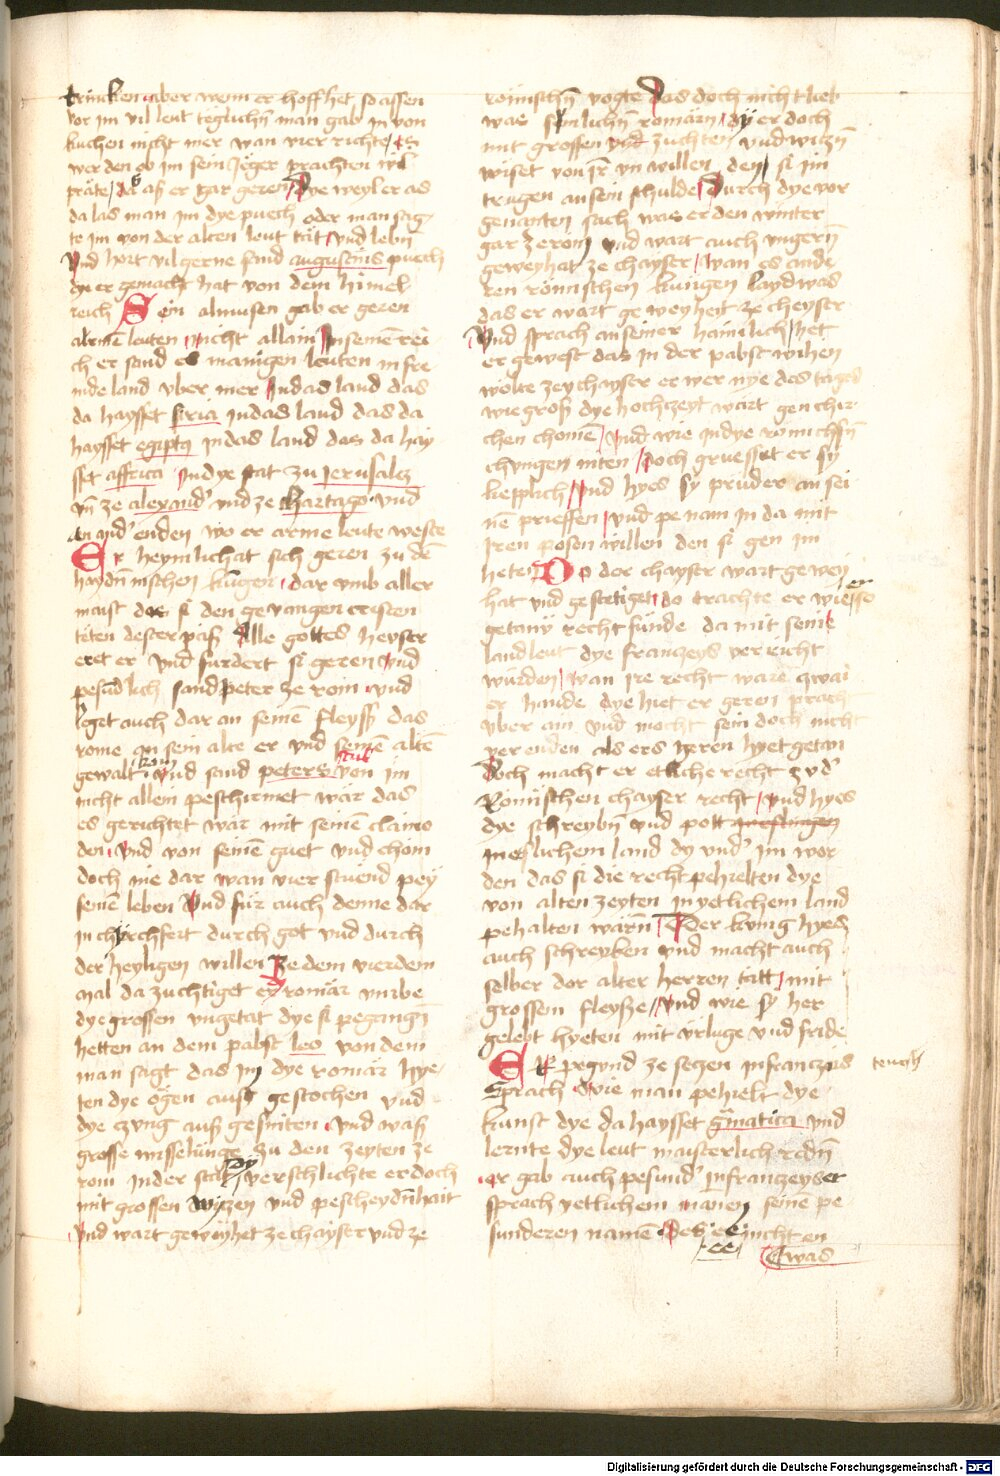 trincken aber wenn er hoff het so assen
vor im vil leut teglichn man gab im von
kuchen nicht mer wan vier richte es
werden ob im sein Jeger prachten wil
präte das aß er gar geren Dye weyl er as
da las man im dye puech oder man sag
te im von der alten leut tät vnd lebn
Vnd hort vil gerne sand augustins puech
dye er gemacht hat von dem himel
reich Sein almusen gab er geren
armen leuten nicht allain In seinē rei
ch er sand es manigen leuten in fre
mde land vber mer In das land das
da haysset siria In das land das da
haysset egiptq in das land das da hay
sset affrica In dye stat zu Jerusalē
vn̄ ze alexand' vnd ze chartago vnd
an and' enden wo er arme leute weste
Er heymlichat sich geren zu dē
haydn̄ nischen kungen dar vmb aller
maist das si den gevangen cristen
täten dester paß Alle gottes hewser
eret er vnd furdert si geren vnd
pesund lich sand peter ze rom vnd
leget auch dar an seinē fleyss das
rome an sein alte er vnd seinē altē
gewalt kom vnd sand peters stul von im
nicht allein peschirmet wär das
es gerichtet wär mit seinē claino
den vnd von seinē guet vnd chom
doch nie dar wan vier stuend pey
seinē leben Vnd für auch denne dar
in chyrchfert durch got vnd durch
der heyligen willen Ze dem vierdem
mal da zuchtiget er dy romär vmbe
dye grossen vngetat dye si pegangn̄
hetten an dem pabst leo von dem
man sagt das im dye romär hye
ten dye ögen auß gestochen vnd
dye czvng auß gesniten vnd waß
grosse misselünge zu den zeyten ze
rom in der stat dy verschlichte er doch
mit grossen wiczen vnd pescheydn̄hait
Vnd wart geweyhet ze chayser vnd ze
römischn̄ vogte Das doch nicht lieb
was sümlichn̄ romärn dy er doch
mit grossen vnd züchten vnd wiczn̄
wiset von Jr vn willen den si im
trugen an sein schulde Durch dye vor
genanten sach was er den winter
gar ze rom vnd wart auch vngern̄
geweyhat ze chayser wan es ande
ren römischen kungen layd was
das er wart geweyhet ze cheyser
Vnd sprach an seiner haimlich het
er gewest das in der pabst wihen
wolte ze chayser er wer nye des tages
wie groß dye hochzeyt wärt gen chir
chen chomē Vnd wie in dye römichsn̄
chvngen niten Doch gruesset er sy
liepplich Vnd hyes sy prüder an sei
nē prieffen vnd pe nam in da mit
Jren posen willen den si gen im
heten Do der chayser wart gewey
hat vnd gestetiget do trachte er wie er sse
getany recht fünde da mit seine
landleut dye franczeys verricht
würden wan ire recht warē zwai
er hande dye hiet er geren pracht
vber ain vnd mocht sein doch nicht
verenden als ers geren hyet getan
Doch macht er etliche recht zv d'
Römischen chayser recht vnd hyes
dye schreybn̄ vnd pott
in etlichem land dy vnd' im wor
den das si die recht pehielten dye
von alten zeyten in yetlichem land
pehalten wärn̄ Der kvnig hyes
auch schreyben vnd macht auch
selber der alter herren tätt mit
grossem fleysse Vnd wie sy her
gelebt hyeten mit vrluge vnd fride
Er pegund ze seczen in franczois teusch
Sprach wie man pehielt dye
kunst dye da haysset gmatica vnd
lernte dye leut maisterlich redn̄
er gab auch pesund' in franczeyser
sprach yetlichem manen seinē pe
sunderen namē Des ee nicht en
ee Etwas
Digitalisierung gefördert durch die Deutsche Forschungsgemeinschaft - DFG